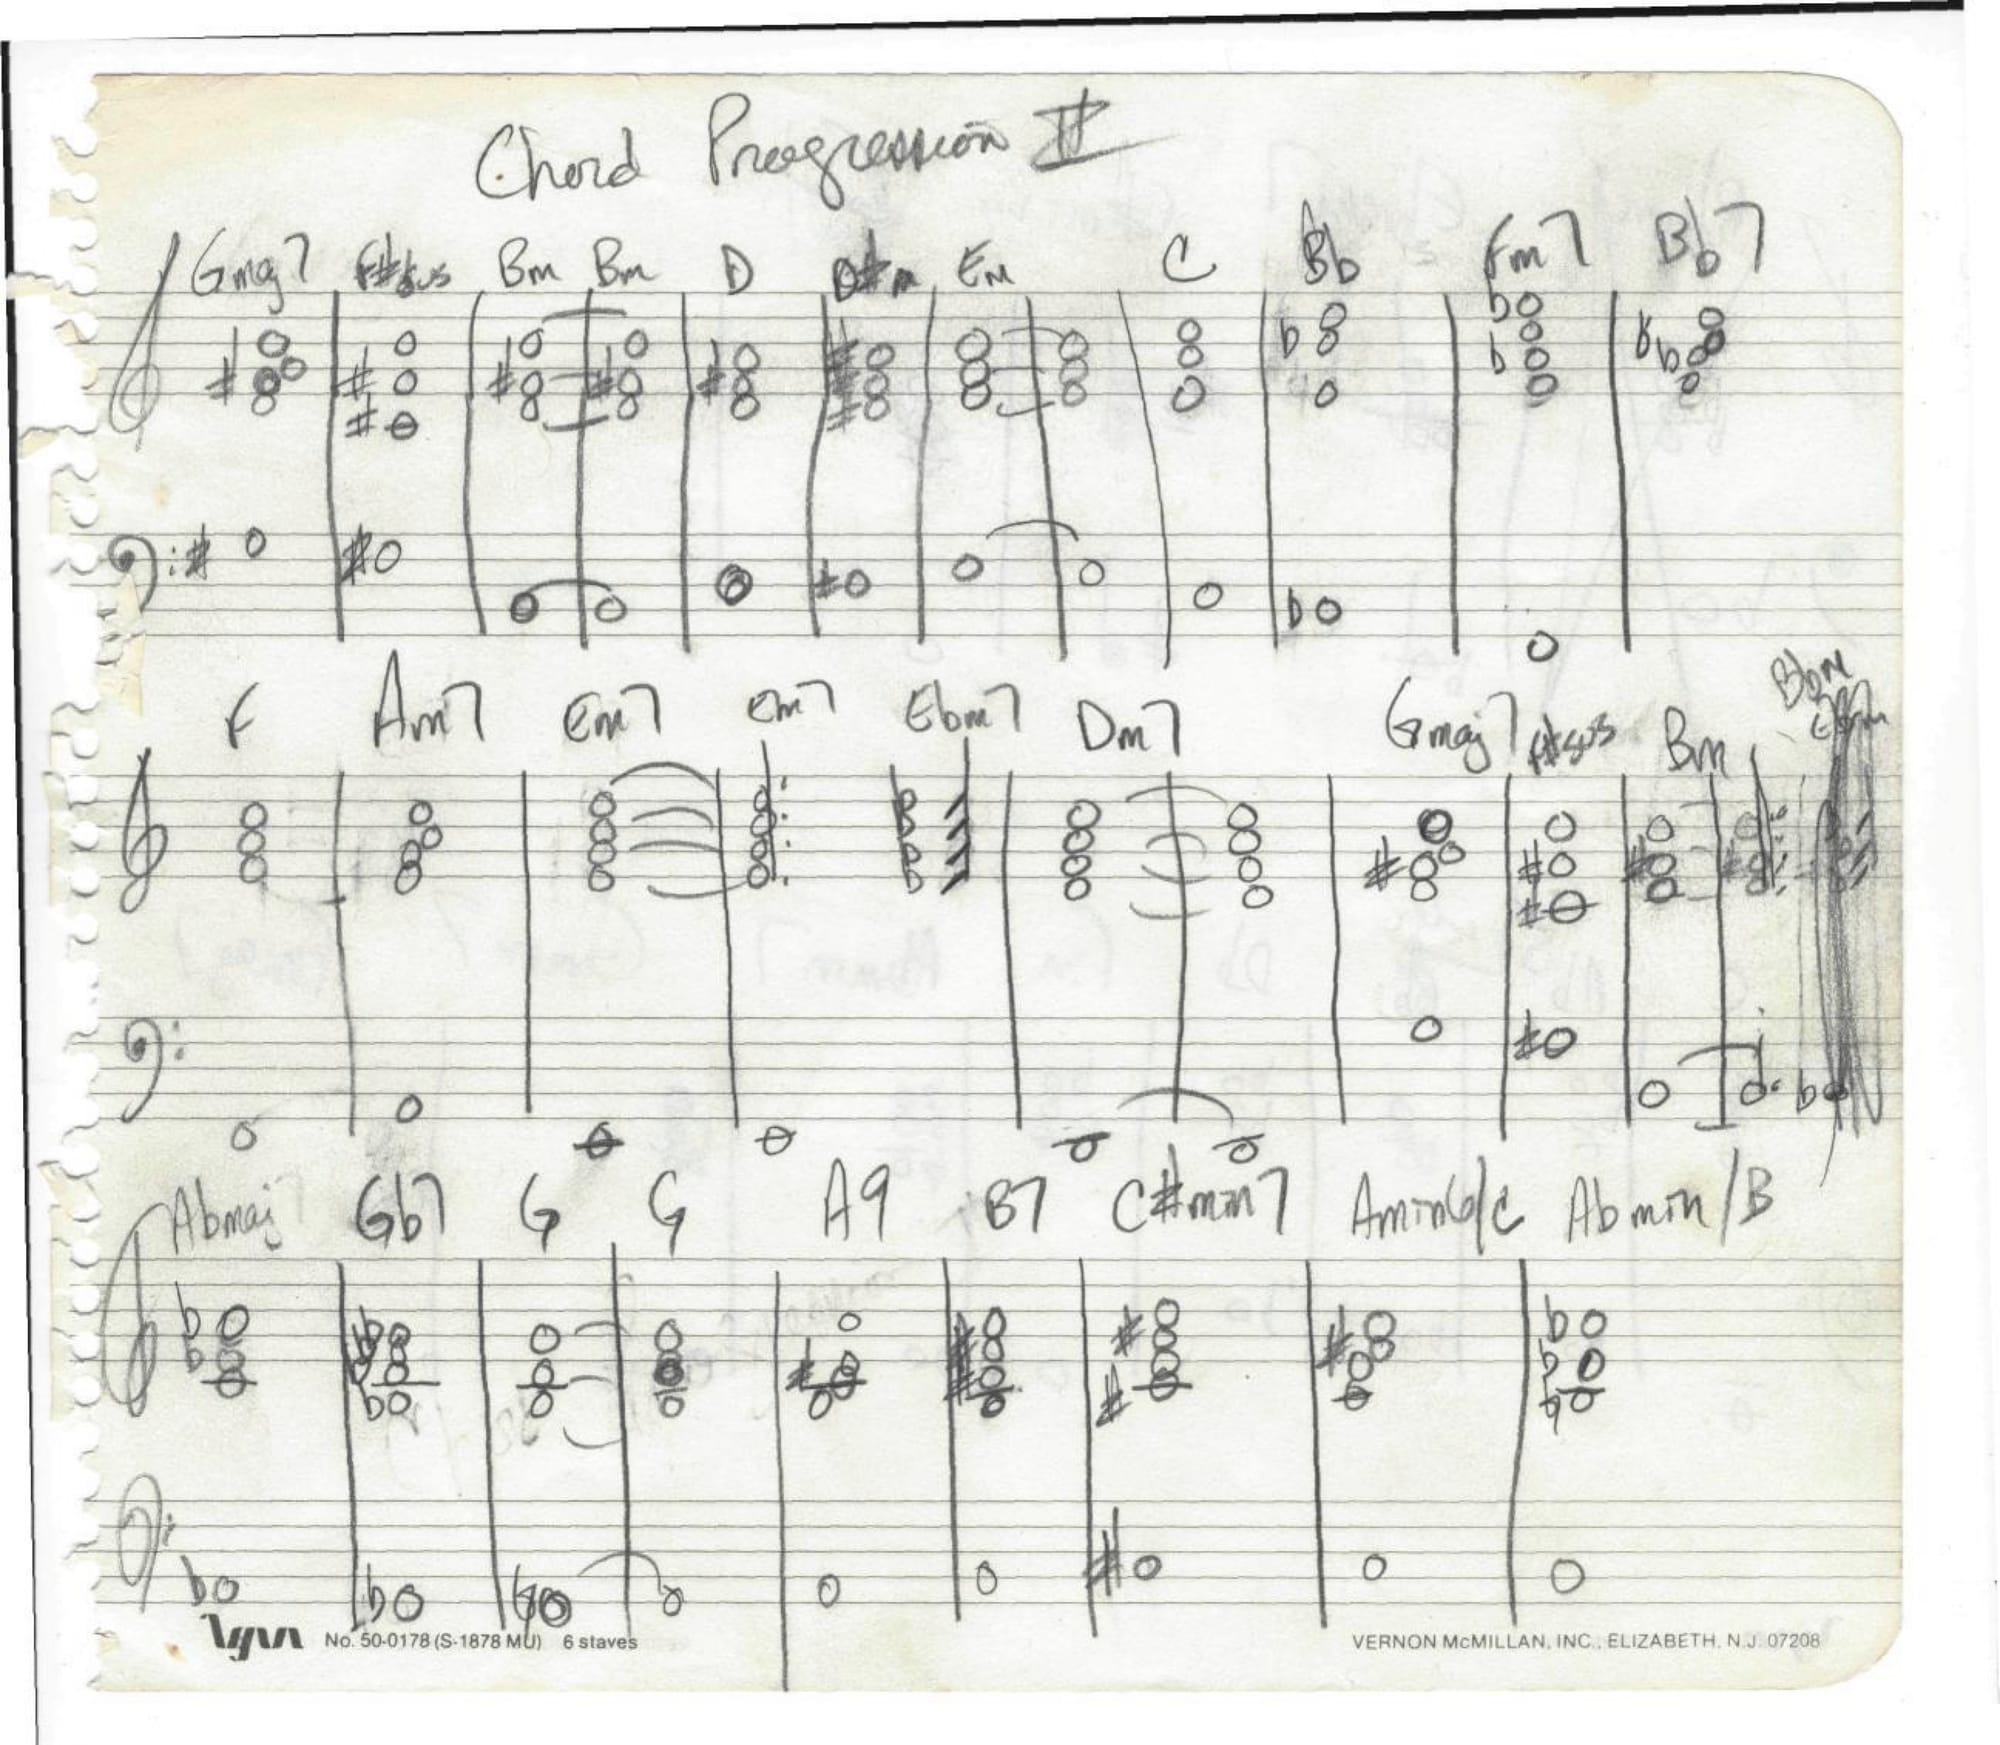 Chord Progression II
Gmaj7 F#sus Bm Bm D D#m Em C Bb Fm7 Bb7
F Am7 Em7 Em7 Ebm7 Dm7 Gmaj7 F#sus Bm Bbm
Abmaj7 Gb7 G G A9 B7 C#min7 Amin6/C Abmin/B
No. 50-0178 (S-1878 MU) 6 staves VERNON McMILLAN, INC., ELIZABETH, N.J. 07208